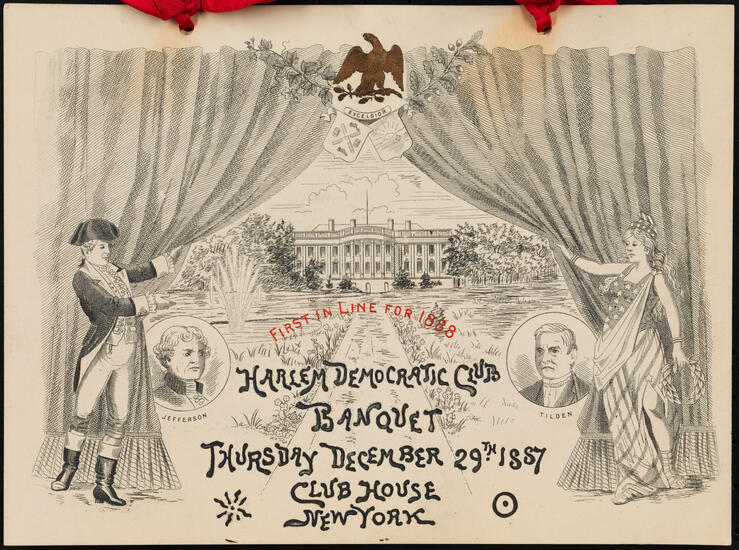 EXCELSIOR
FIRST IN LINE FOR 1888
JEFFERSON
TILDEN
HARLEM DEMOCRATIC CLUB
BANQUET
THURSDAY DECEMBER 29TH 1887
CLUB HOUSE
NEW YORK